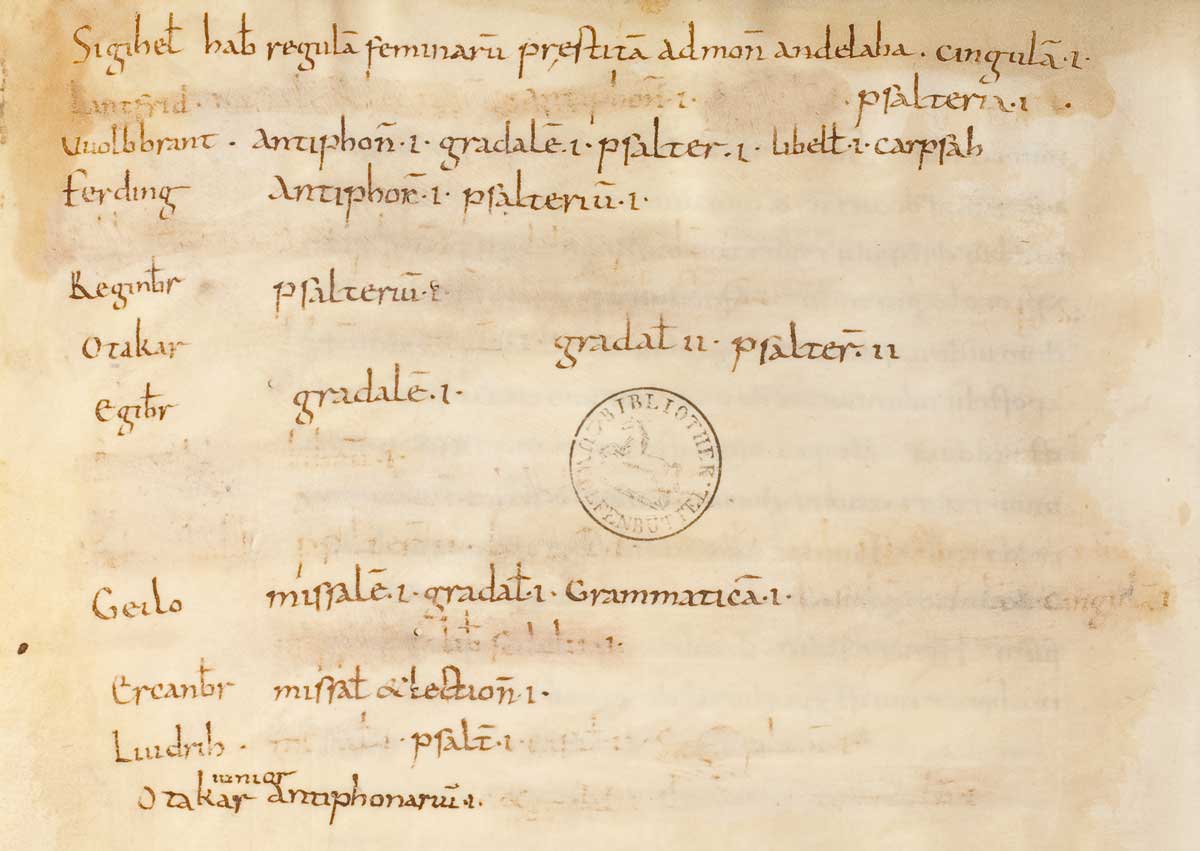 Sigibeł hab̄ regulā feminarū pręstitā admoñ andelaha · cingulā · i ·
Lantfrid · antiphoñ · i · psalteria · i ·
Vuolbbrant · Antiphoñ · i · gradalē · i · psalter · i · libełł · i · carpsah
Ferding Antiphoñ · i · psalteriū · i ·
Reginb̄r psalteriū · i ·
Otakar gradał ii · psalter̄ · ii
Egib̄r gradalē · i ·
BIBLIOTHEK WOLFENBÜTTEL
Geilo missalē · i · gradał · i · Grammaticā · i · cingulā i
Ercanb̄r missał & lectioñ · i ·
Liudrih · psalt̄ · i ·
Otakar iunior Antiphonariū · i ·